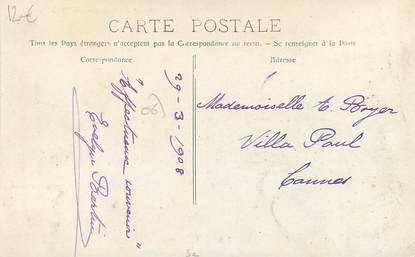 12 €
CARTE POSTALE
Tous les Pays étrangers n'acceptent pas la Correspondance au recto. — Se renseigner à la Poste
Correspondance
Adresse
29-3-1908
"Affectueux souvenir"
Evelyn
Mademoiselle E. Boyer
Villa Paul
Cannes